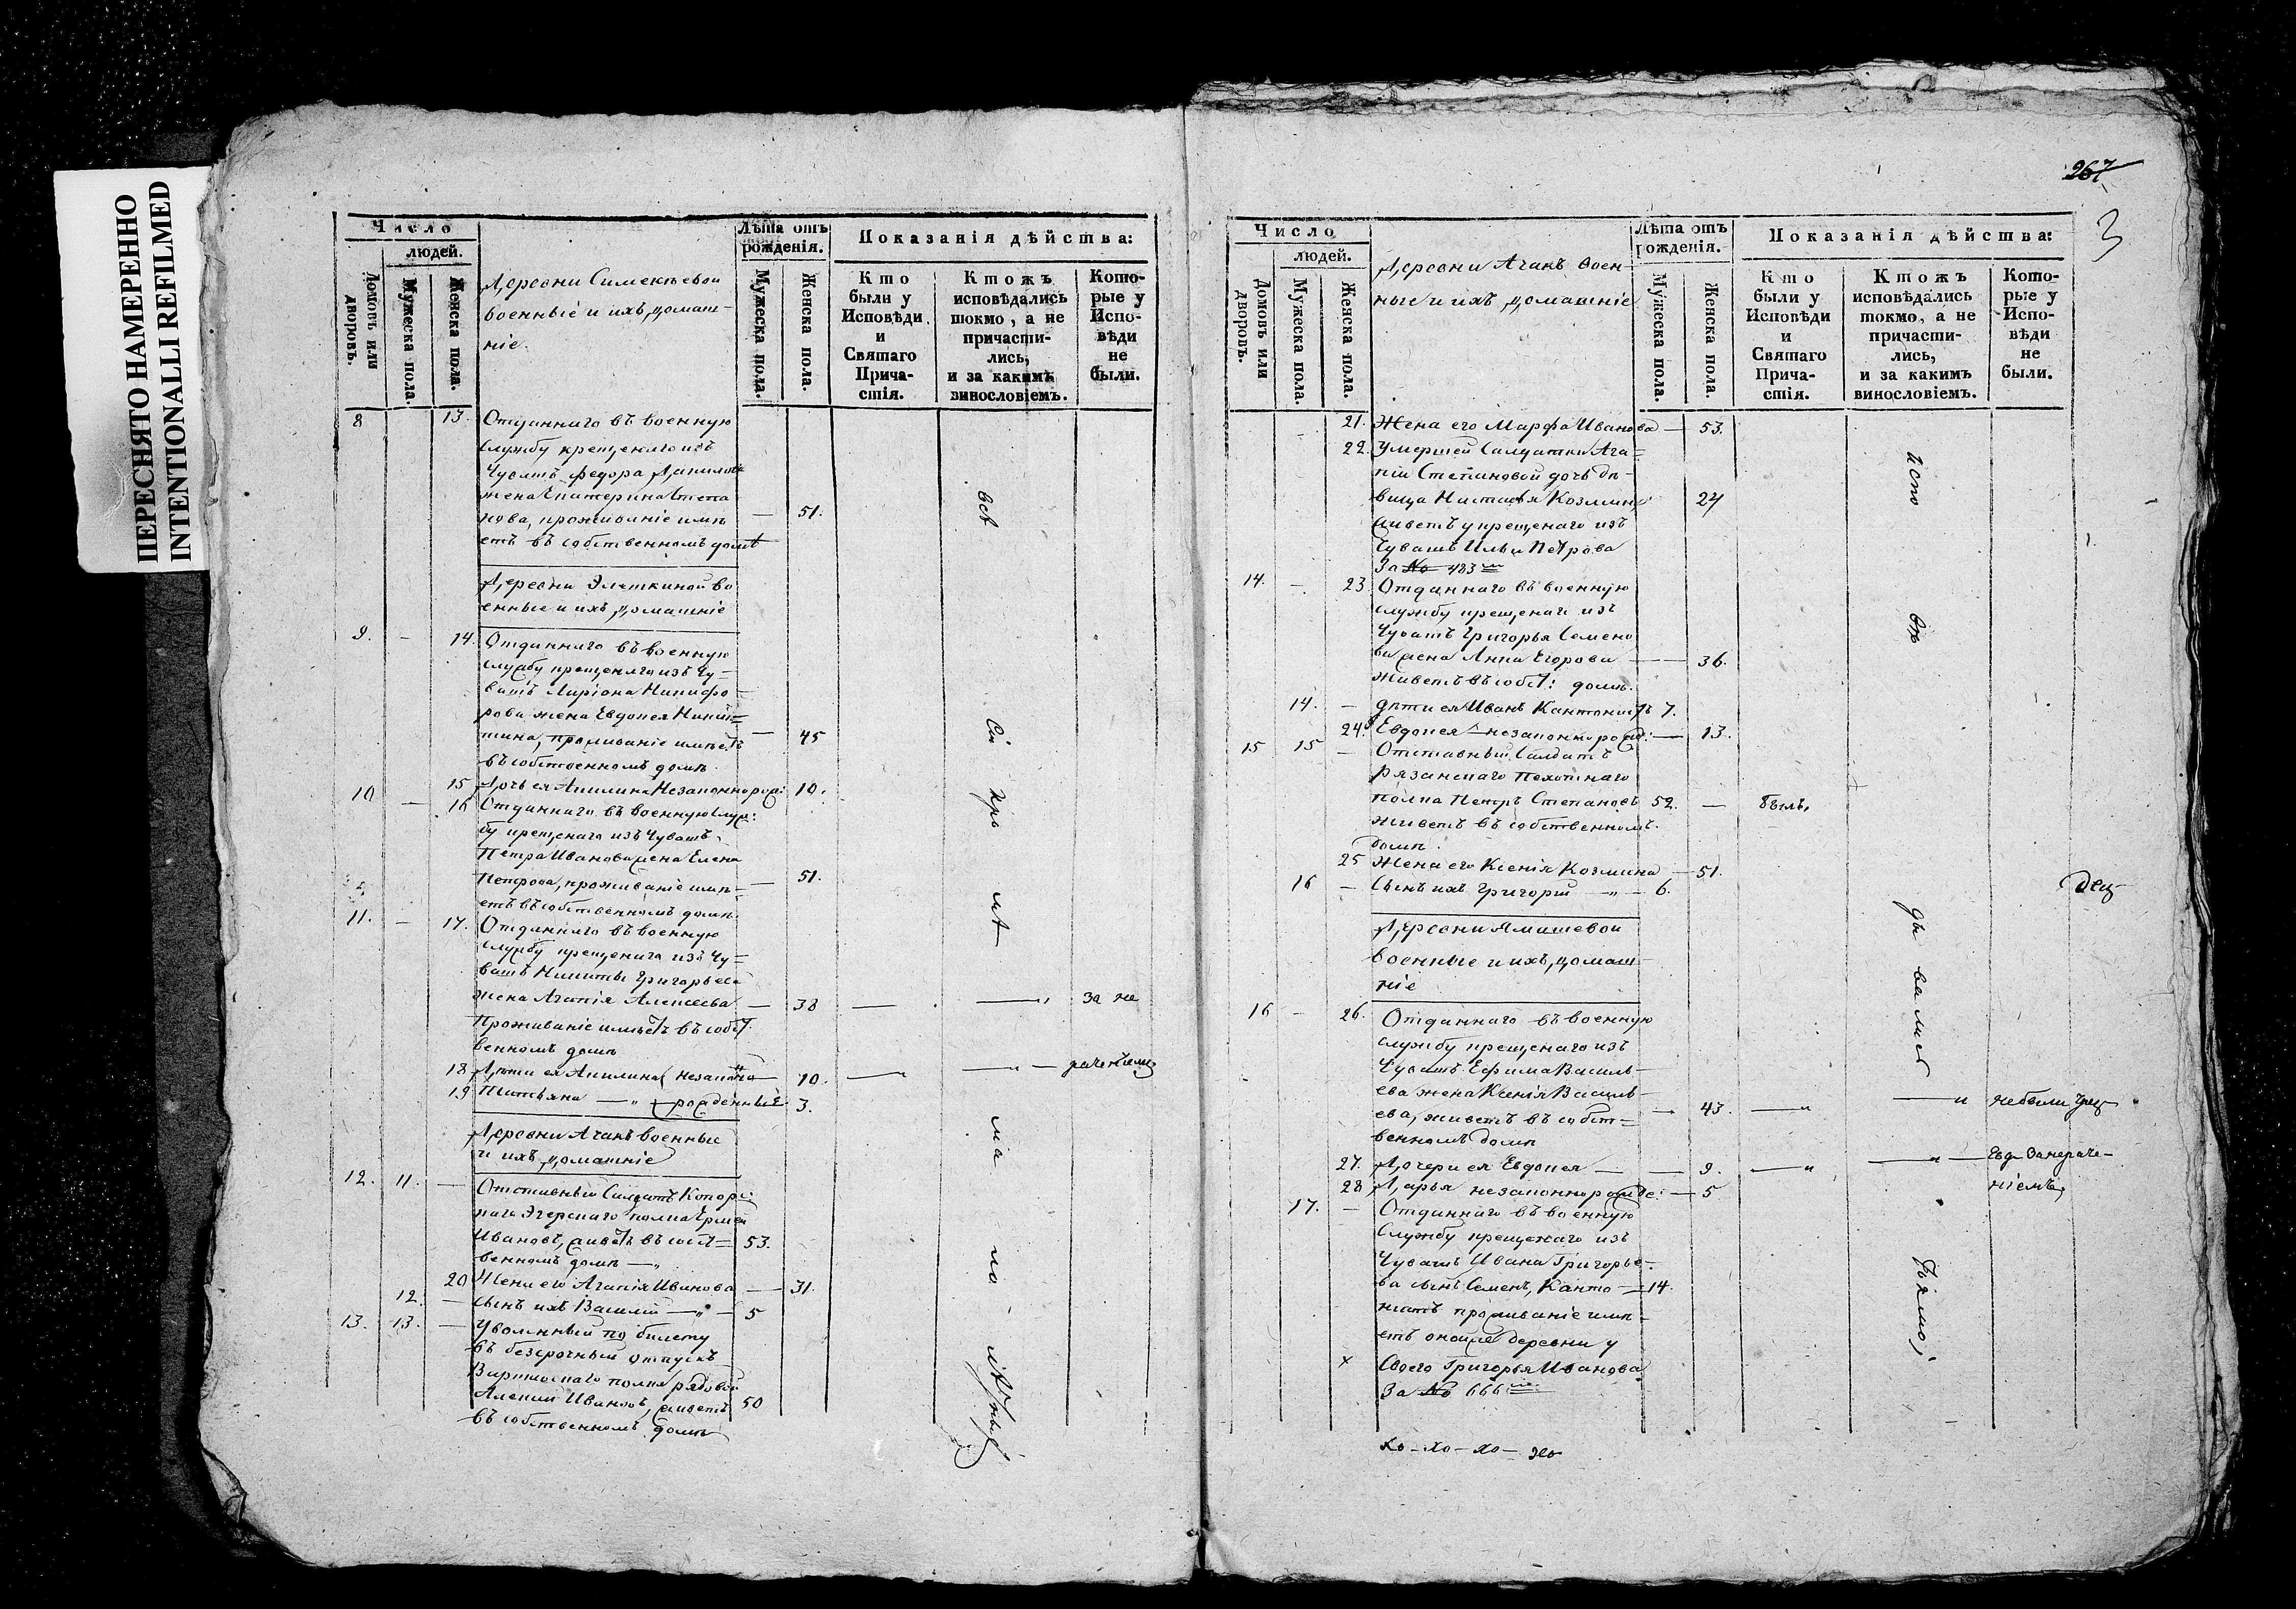 ПЕРЕСНЯТО НАМЕРЕННО
INTENTIONALLI REFILMED
Число
людей.
Домовъ или дворовъ.
Мужеска пола.
Женска пола.
Деревни Симекѣевой
военныіе и ихъ домаш-
ніе.
Лѣта отъ рожденія.
Мужеска пола.
Женска пола.
Показанія дѣйства:
Кто были у Исповѣди и Святаго Прича-стія.
Ктожъ исповѣдались токмо, а не причасти-лись, и за какимъ винословіемъ.
Кото-рые у Испо-вѣди не были.
8 13. Отданнаго въ военную
службу крещенаго изъ
Чувашъ Федора Данилова
жена Екатерина Степа
нова, проживаніе имѣ — 51.
етъ въ собственномъ домѣ
Деревни Элаткиной во
енные и ихъ домашніе
9. - 14. Отданнаго въ военную
службу крещенаго изъ Чу-
вашъ Ларіона Никифо-
рова жена Евдокея Никит=
тина, проживаніе имѣетъ — 45
въ собственномъ домѣ.
15 Дочь ея Акилина Незаконнорож: 10.
10 — 16 Отданнаго въ военную служ:
бу крещенаго изъ Чувашъ
Петра Иванова жена Елена
Петрова, проживаніе имѣ- — 51.
етъ въ собственномъ домѣ.
11. — 17. Отданнаго въ военную
службу крещенаго изъ Чу=
вашъ Никиты Григорьева
жена Агапія Алексеева — 38 — — за не
Проживаніе имѣетъ въ собст.
венномъ домѣ
18 Дѣти ея Акилина незаконно — 10. — —
19 Татьяна — рожденныіе 3.
Деревни Ачакъ военные
и ихъ домашніе
12. 11. — Отставный Солдатъ
Егерскаго полка Ермей
Ивановъ, живетъ въ собст= 53.
венномъ домѣ —
20 Жена его Агапія Иванова — 31.
12. — Сынъ ихъ Василій — 5
13. 13. — Уволенный по билету
въ безсрочный отпускъ
полка рядовой
Алексей Ивановъ, живетъ 50
въ собственномъ домѣ
всѣ
Сіи
при
лѣ
но
267
3
Число
людей.
Домовъ или дворовъ.
Мужеска пола.
Женска пола.
Деревни Ачакъ воен-
ные и ихъ домашніе
Лѣта отъ рожденія.
Мужеска пола.
Женска пола.
Показанія дѣйства:
Кто были у Исповѣди и Святаго Прича-стія.
Ктожъ исповѣдались токмо, а не причасти-лись, и за какимъ винословіемъ.
Кото-рые у Испо-вѣди не были.
21. Жена его Марфа Иванова — 53.
22. Умершей Салдатки Ага=
піи Степановой дочь дѣ-
вица Настасья Козмина 24
живетъ у крещенаго изъ
Чувашъ Ильи Петрова
За № 483
14. - 23. Отданнаго въ военную
службу крещенаго изъ
Чувашъ Григорья Семено
ва жена Анна Егорова — 36.
живетъ въ собст: домѣ.
14. — Дѣти ея Иванъ Кантонистъ 7.
24. Евдокея незаконнорожд: — 13.
15 15 — Отставный Салдатъ
Рязанскаго Пехотнаго
полка Петръ Степановъ 52. — Былъ,
живетъ въ собственномъ.
домѣ.
25 Жена его Ксенія Козмина — 51.
16 — Сынъ ихъ Григорій — 6.
Деревни Ямашевой
военные и ихъ домаш-
ніе
16 - 26. Отданнаго въ военную
службу крещенаго изъ
Чувашъ Ефима Василь-
ева жена Ксенія Василь-
ева, живетъ въ собст= — 43. — — небыли
венномъ домѣ
27. Дочери ея Евдокея — — 9. — —
28 Дарья незаконнорожде: — 5 ніемъ,
17. — Отданнаго въ военную
Службу крещенаго изъ
Чувашъ Ивана Григорье-
ва сынъ Семенъ, Канто — 14.
нистъ проживаніе имѣ-
етъ оной деревни у
x Своего Григорья Иванова
За № 666
испо
вѣ
ды
ва
лись
токмо;